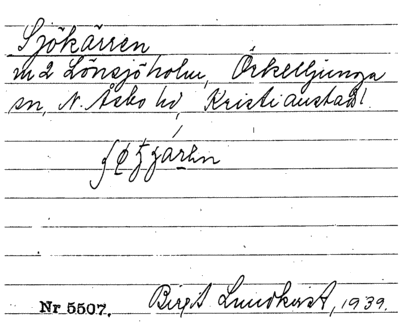 Sjökärren
m 2 Lönsjöholm, Örkelljunga
sn, N. Åsbo hd, Kristianstads l.
Nr 5507. Birgit Lundkvist, 1939.